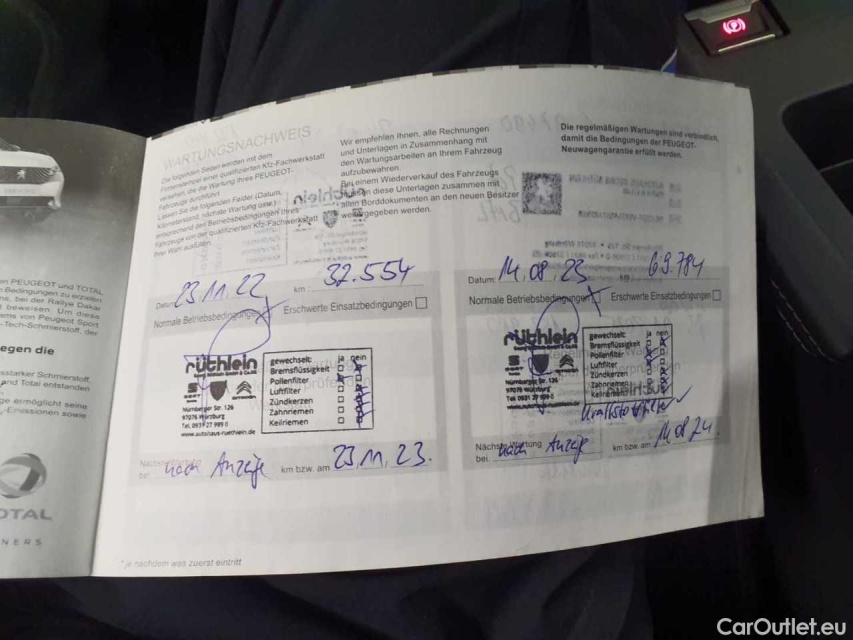 WARTUNGSNACHWEIS
Die folgenden Seiten werden mit dem
Firmenstempel einer qualifizierten Kfz-Fachwerkstatt
versehen, die die Wartung Ihres PEUGEOT-
Fahrzeugs durchführt.
Lassen Sie die folgenden Felder (Datum,
Kilometerstand, nächste Wartung usw.)
entsprechend den Betriebsbedingungen Ihres
Fahrzeugs von der qualifizierten Kfz-Fachwerkstatt
Ihrer Wahl ausfüllen.
Wir empfehlen Ihnen, alle Rechnungen
und Unterlagen in Zusammenhang mit
den Wartungsarbeiten an Ihrem Fahrzeug
aufzubewahren.
Bei einem Wiederverkauf des Fahrzeugs
diese Unterlagen zusammen mit
allen Borddokumenten an den neuen Besitzer
weitergegeben werden.
Die regelmäßigen Wartungen sind verbindlich,
damit die Bedingungen der PEUGEOT-
Neuwagengarantie erfüllt werden.
Datum: 23.11.22 km: 32.554
Normale Betriebsbedingungen Erschwerte Einsatzbedingungen
rüthlein
Nürnberger Str. 126
97076 Würzburg
Tel. 0931 27 989 0
www.autohaus-ruethlein.de
gewechselt: ja nein
Bremsflüssigkeit
Pollenfilter
Luftfilter
Zündkerzen
Zahnriemen
Keilriemen
Nächste Wartung
bei: nach Anzeige km bzw. am 23.11.23.
* je nachdem was zuerst eintritt
Datum: 14.08.23 km: 69.784
Normale Betriebsbedingungen Erschwerte Einsatzbedingungen
rüthlein
Nürnberger Str. 126
97076 Würzburg
Tel. 0931 27 989 0
www.autohaus-ruethlein.de
gewechselt: ja nein
Bremsflüssigkeit
Pollenfilter
Luftfilter
Zündkerzen
Zahnriemen
Keilriemen
Kraftstofffilter
Nächste Wartung
bei: nach Anzeige km bzw. am 14.08.24
PEUGEOT und TOTAL
Bedingungen zu erzielen
bei der Rallye Dakar
bewerten. Um diese
ms von Peugeot Sport
-Tech-Schmierstoff, der
egen die
sstarker Schmierstoff,
und Total entstanden
ge ermöglicht seine
Emissionen sowie
OTAL
NERS
CarOutlet.eu